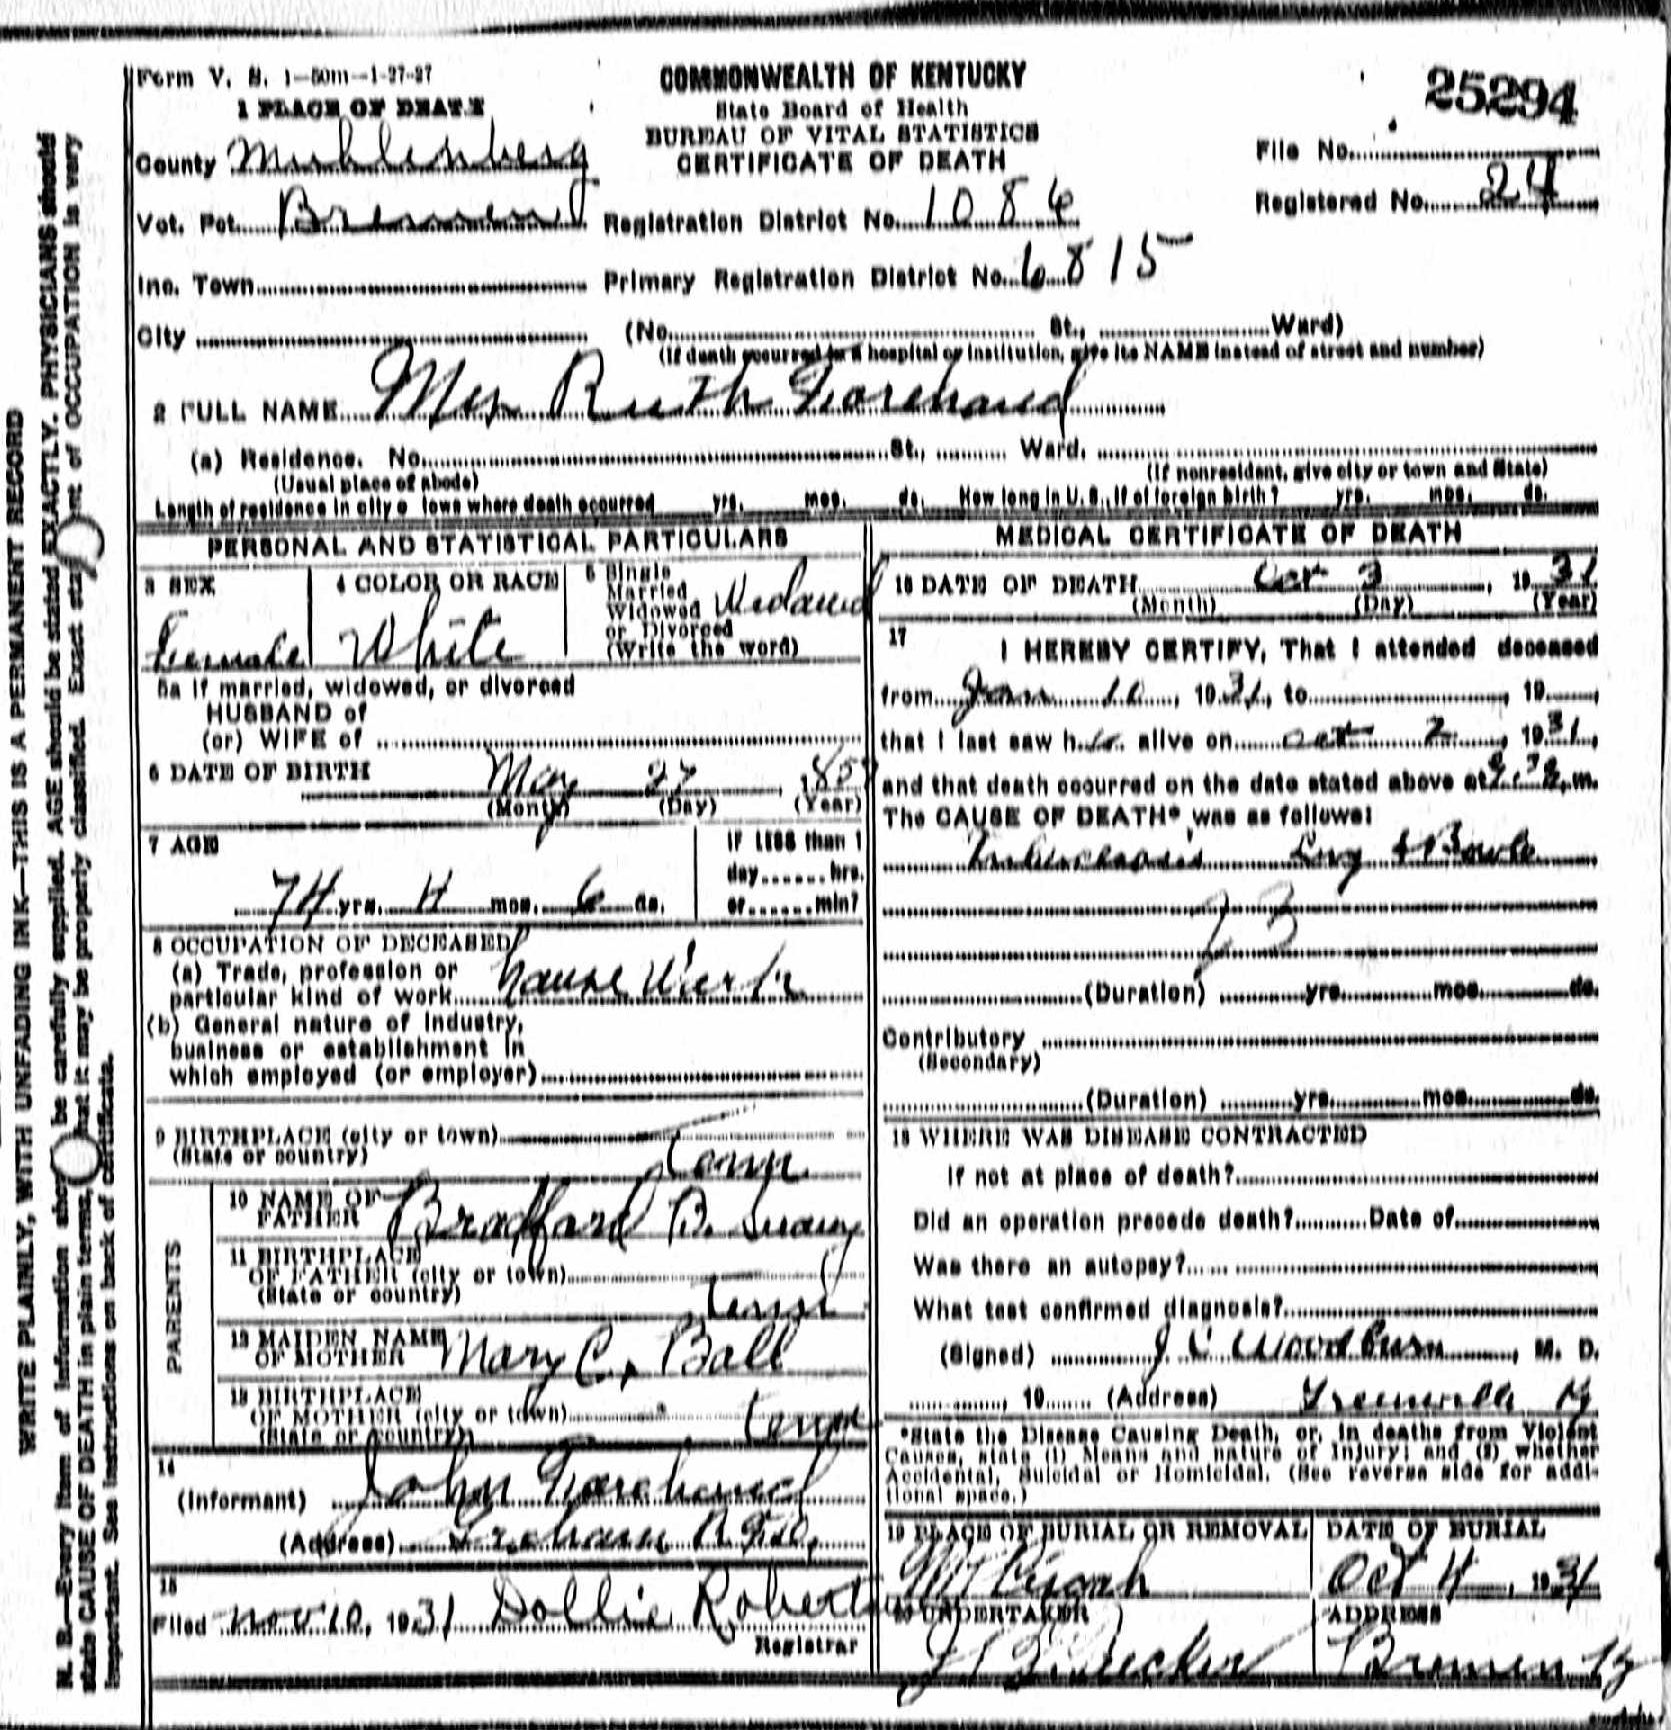 Form V. S. 1-50m-1-27-27
COMMONWEALTH OF KENTUCKY
State Board of Health
BUREAU OF VITAL STATISTICS
CERTIFICATE OF DEATH
25294
File No.
Registered No. 24
1 PLACE OF DEATH
County Muhlenberg
Vot. Pct. Bremen Registration District No. 1086
Inc. Town Primary Registration District No. 6815
City (No. St., Ward)
(If death occurred in a hospital or institution, give its NAME instead of street and number)
2 FULL NAME Mrs Ruth Forehand
(a) Residence. No. St., Ward.
(Usual place of abode) (If nonresident, give city or town and State)
Length of residence in city or town where death occurred yrs. mos. ds. How long in U. S., if of foreign birth? yrs. mos. ds.
PERSONAL AND STATISTICAL PARTICULARS
3 SEX Female
4 COLOR OR RACE White
5 Single
Married
Widowed
or Divorced
(Write the word)
Widowed
5a If married, widowed, or divorced
HUSBAND of
(or) WIFE of
6 DATE OF BIRTH May 27, 1857
(Month) (Day) (Year)
7 AGE
74 yrs. 4 mos. 6 ds.
If LESS than 1
day hrs.
or min?
8 OCCUPATION OF DECEASED
(a) Trade, profession or
particular kind of work House Work
(b) General nature of Industry,
business or establishment in
which employed (or employer)
9 BIRTHPLACE (city or town)
(State or country) Tenn
PARENTS
10 NAME OF
FATHER Bradford B.
11 BIRTHPLACE
OF FATHER (city or town)
(State or country) Tenn
12 MAIDEN NAME
OF MOTHER Mary C. Ball
13 BIRTHPLACE
OF MOTHER (city or town)
(State or country) Tenn
14
(Informant) John Forehand
(Address) Graham R.F.D.
15
Filed Nov 10, 1931 Dollie Roberts
Registrar
MEDICAL CERTIFICATE OF DEATH
16 DATE OF DEATH Oct 3, 1931
(Month) (Day) (Year)
17
I HEREBY CERTIFY, That I attended deceased
from Jan 10, 1931, to , 19
that I last saw h alive on Oct 2, 1931,
and that death occurred on the date stated above at m.
The CAUSE OF DEATH* was as follows:
Tuberculosis Lung & Bowls
23
(Duration) yrs. mos. ds.
Contributory
(Secondary)
(Duration) yrs. mos. ds.
18 WHERE WAS DISEASE CONTRACTED
If not at place of death?
Did an operation precede death? Date of
Was there an autopsy?
What test confirmed diagnosis?
(Signed) J C Woodburn, M. D.
, 19 (Address) Greenville Ky
*State the Disease Causing Death, or, in deaths from Violent
Causes, state (1) Means and nature of Injury; and (2) whether
Accidental, Suicidal or Homicidal. (See reverse side for addi-
tional space.)
19 PLACE OF BURIAL OR REMOVAL
Mt Pisgah
DATE OF BURIAL
Oct 4, 1931
20 UNDERTAKER
ADDRESS
Bremen Ky
WRITE PLAINLY, WITH UNFADING INK—THIS IS A PERMANENT RECORD
N. B.—Every item of information should be carefully supplied. AGE should be stated EXACTLY. PHYSICIANS should
state CAUSE OF DEATH in plain terms, that it may be properly classified. Exact statement of OCCUPATION is very
important. See instructions on back of certificate.